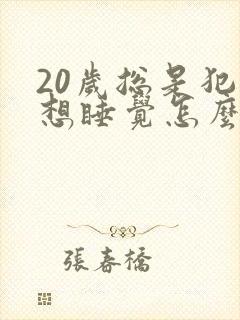 20歲總是犯
想睡覺怎麼
張春橋